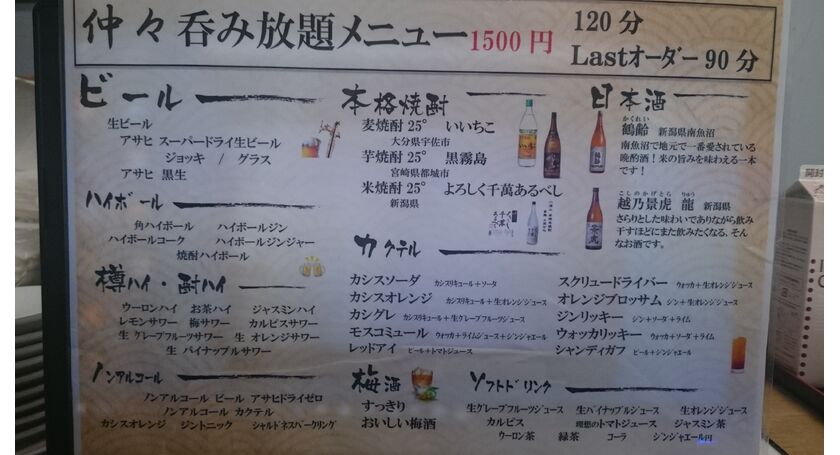 仲々呑み放題メニュー1500円
120分
Lastオーダー90分
ビール
生ビール
アサヒ スーパードライ生ビール
ジョッキ / グラス
アサヒ 黒生
ハイボール
角ハイボール ハイボールジン
ハイボールコーク ハイボールジンジャー
焼酎ハイボール
樽ハイ・酎ハイ
ウーロンハイ お茶ハイ ジャスミンハイ
レモンサワー 梅サワー カルピスサワー
生 グレープフルーツサワー 生 オレンジサワー
生 パイナップルサワー
ノンアルコール
ノンアルコール ビール アサヒドライゼロ
ノンアルコール カクテル
カシスオレンジ ジントニック シャルドネスパークリング
本格焼酎
麦焼酎 25° いいちこ
大分県宇佐市
芋焼酎 25° 黒霧島
宮崎県都城市
米焼酎 25° よろしく千萬あるべし
新潟県
日本酒
かくれい
鶴齢 新潟県南魚沼
南魚沼で地元で一番愛されている
晩酌酒！米の旨みを味わえる一本
です！
こしのかげとら りゅう
越乃景虎 龍 新潟県
さらりとした味わいでありながら飲み
干すほどにまた飲みたくなる、そん
なお酒です。
カクテル
カシスソーダ カシスリキュール＋ソーダ
カシスオレンジ カシスリキュール＋生オレンジジュース
カシグレ カシスリキュール＋生グレープフルーツジュース
モスコミュール ウォッカ＋ライムジュース＋ジンジャエール
レッドアイ ビール＋トマトジュース
スクリュードライバー ウォッカ＋生オレンジジュース
オレンジブロッサム ジン＋生オレンジジュース
ジンリッキー ジン＋ソーダ＋ライム
ウォッカリッキー ウォッカ＋ソーダ＋ライム
シャンディガフ ビール＋ジンジャエール
梅酒
すっきり
おいしい梅酒
ソフトドリンク
生グレープフルーツジュース 生パイナップルジュース 生オレンジジュース
カルピス 理想のトマトジュース ジャスミン茶
ウーロン茶 緑茶 コーラ ジンジャエール
開封